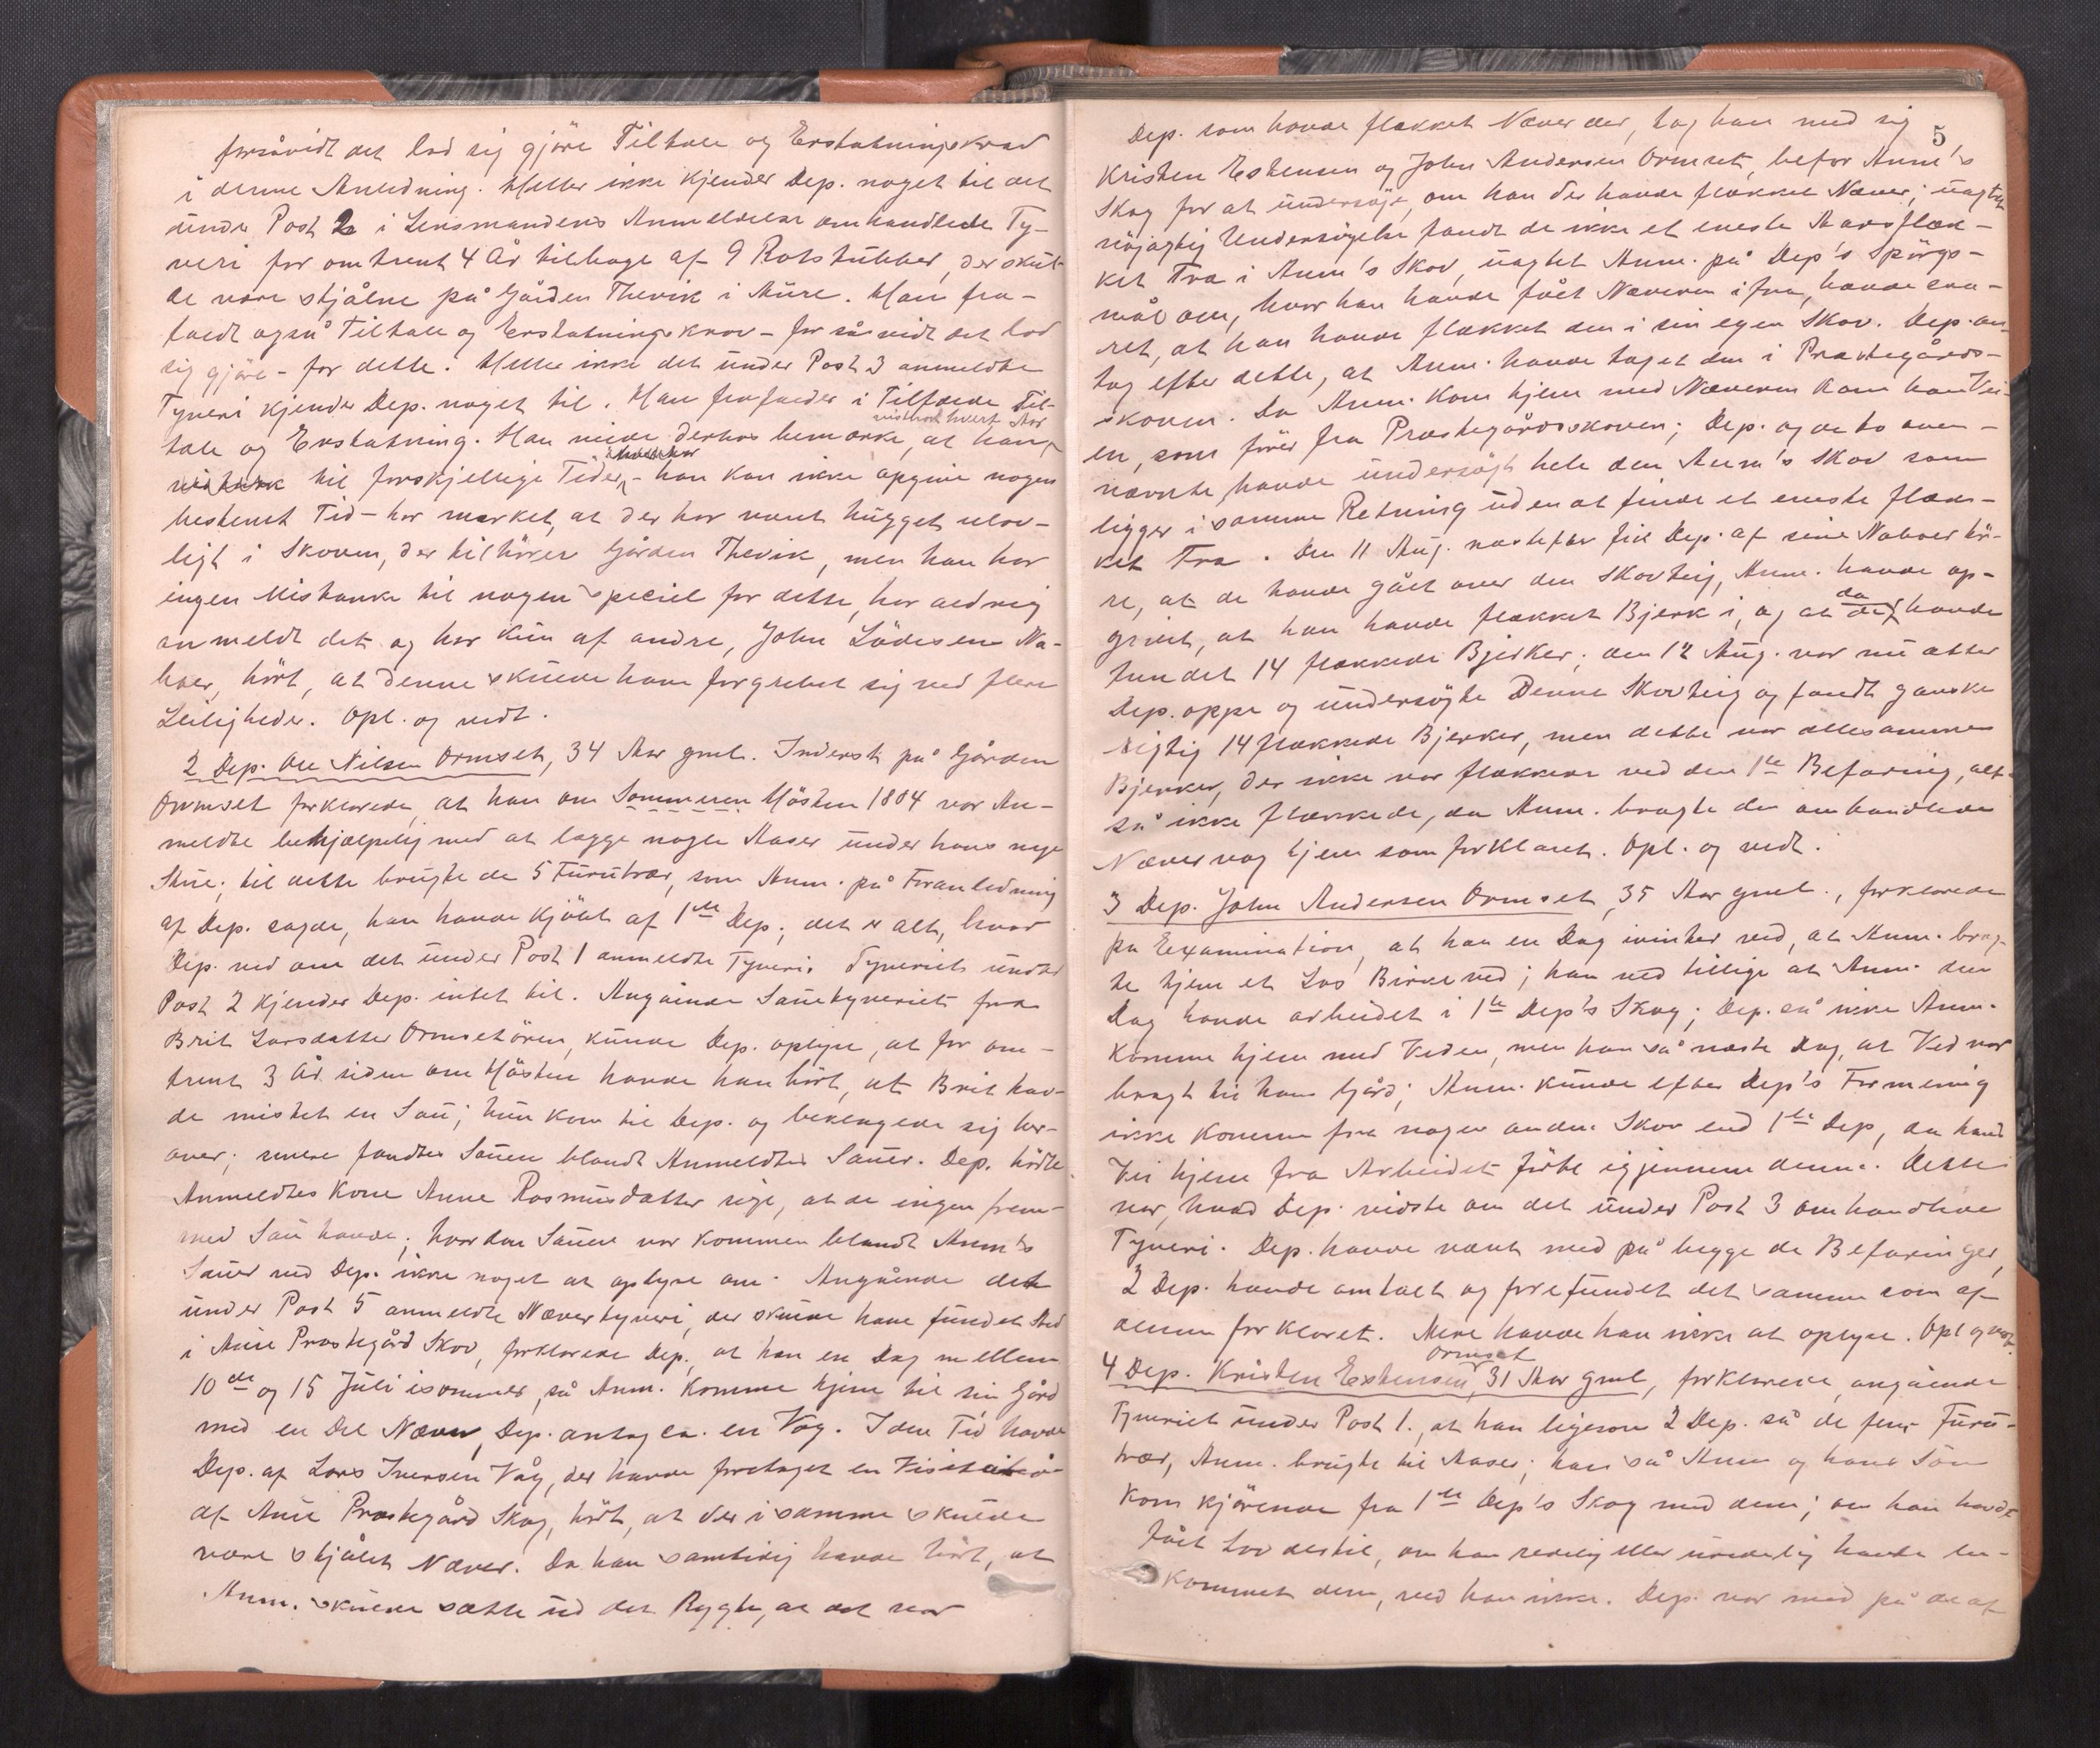 forsåvidt det lod sig gjöre Tiltale og Erstatningskrav
i denne Anledning. Heller ikke kjender Dep. noget til det
under Post 2 i Lensmandens Anmeldelse omhandlede Ty-
veri for omtrent 4 År tilbage af 9 Rotstubber, der skul-
de være stjålne på Gården Thevik i Aure. Han fra-
faldt også Tiltale og Erstatningskrav - for så vidt det lod
sig gjöre - for dette. Heller ikke det under Post 3 anmeldte
Tyveri kjender Dep. noget til. Han frafalder i Tilfælde Til-
tale og Erstatning. Han måde derhos bemærke, at han
vistnok hvert Aar
til forskjellige Tider, - han kan ikke opgive nogen
bestemt Tid - har mærket, at der har været hugget ulov-
ligt i Skoven, der tilhörer Gården Thevik, men han har
ingen Mistanke til nogen speciel for dette, har aldrig
anmeldt det og har kun af andre, John Lödesens Na-
boer, hört, at denne skulde have forgrebet sig ved flere
Leiligheder. Opl. og vedt.
2 Dep. Ole Nilsen Ormset, 34 Aar gml. Inderst på Gården
Ormset forklarede, at han om Sommeren Hösten 1884 var An-
meldte behjælpelig med at lægge nogle Aaser under hans nye
Stue; til dette brugte de 5 Furutrær, som Anm. på Foranledning
af Dep. sagde, han havde kjöbt af 1ste Dep.; det er alt, hvad
Dep. ved om det under Post 1 anmeldte Tyveri. Tyveriet under
Post 2 kjender Dep. intet til. Angående Sauetyveriet fra
Brit Larsdatter Ormsetören, kunde Dep. oplyse, at for om-
trent 3 År siden om Hösten havde han hört, at Brit hav-
de mistet en Sau; hun kom til Dep. og beklagede sig her-
over; senere fandtes Sauen blandt Anmeldtes Sauer. Dep. hörte
Anmeldtes Kone Anne Rasmusdatter sige, at de ingen frem-
med Sau havde; hvordan Sauen var kommen blandt Anm's
Sauer ved Dep. ikke noget at oplyse om. Angående det
under Post 5 anmeldte Nævertyveri, der skulde have fundet Sted
i Aure Prestegård Skov, forklarede Dep., at han en Dag mellem
10de og 15 Juli isommer, så Anm. komme hjem til sin Gård
med en Del Næver, Dep. antog ca. en Våg. I den Tid havde
Dep. af Lars Iversen Våg, der havde foretaget en Visitation
af Aure Prestegård Skog, hört, at der i samme skulde
være stjålet Næver. Da han samtidig havde hört, at
Anm. skulde sætte ud det Rygte, at det var
5
Dep. som havde flækket Næver der, tog han med sig
Kristen Estensen og John Andersen Ormset, befor Anm's
Skog for at undersöge, om han der havde flækket Næver; uagtet
nöjagtig Undersögelse fandt de ikke et eneste Aarsflæk-
ket Træ i Anm's Skov, uagtet Anm. på Dep's Spörgs-
mål om, hvor han havde fået Næveren ifra, havde sva-
ret, at han havde flækket den i sin egen Skov. Dep. an-
tog efter dette, at Anm. havde taget den i Prestegårds-
skoven. Da Anm. kom hjem med Næveren kom han Vei-
en, som förer fra Prestegårdsskoven; Dep. og de to oven-
nævnte havde undersögt hele den Anm's Skov som
ligger i samme Retning uden at finde et eneste flæk-
ket Træ. Den 11 Aug. næstefter fik Dep. af sine Naboer hö-
re, at de havde gået over den Skovteig, Anm. havde op-
givet, at han havde flækket Bjerk i, og at de da havde
fundet 14 flækkede Bjerker; den 12 Aug. var nu atter
Dep. oppe og undersögte denne Skovteig og fandt ganske
rigtig 14 flækkede Bjerker, men dette var allesammen
Bjerker, der ikke var flækkede ved den 1ste Befaring, alt-
så ikke flækkede, da Anm. bragte den omhandlede
Næver våg hjem som forklaret. Opl. og vedt.
3 Dep. John Andersen Ormset, 35 Aar gml., forklarede
på Examination, at han en Dag ivinter ved, at Anm. brag-
te hjem et Læs Birkeved; han ved tillige at Anm. den
Dag havde arbeidet i 1ste Dep's Skog; Dep. så ikke Anm.
komme hjem med Veden, men han så næste Dag, at Ved var
bragt til hans Gård; Anm. kunde efter Dep's Formening
ikke komme fra nogen anden Skov end 1ste Dep, da hans
Vei hjem fra Arbeidet förte igjennem denne. Dette
var, hvad Dep. vidste om det under Post 3 omhandlede
Tyveri. Dep. havde været med på begge de Befaringer,
2 Dep. havde omtalt og forefundet det samme som af
denne forklaret. Mere havde han ikke at oplyse. Opl og vedt.
4 Dep. Kristen Estensen Ormset, 31 Aar gml, forklarede, angående
Tyveriet under Post 1., at han ligesom 2 Dep. så de fem Furu-
trær, Anm. brugte til Aaser; han så Anm og hans Sön
kom kjörende fra 1ste Dep's Skog med dem; om han havde
fået Lov dertil, om han redelig eller uredelig havde be-
kommet dem, ved han ikke. Dep. var med på de af